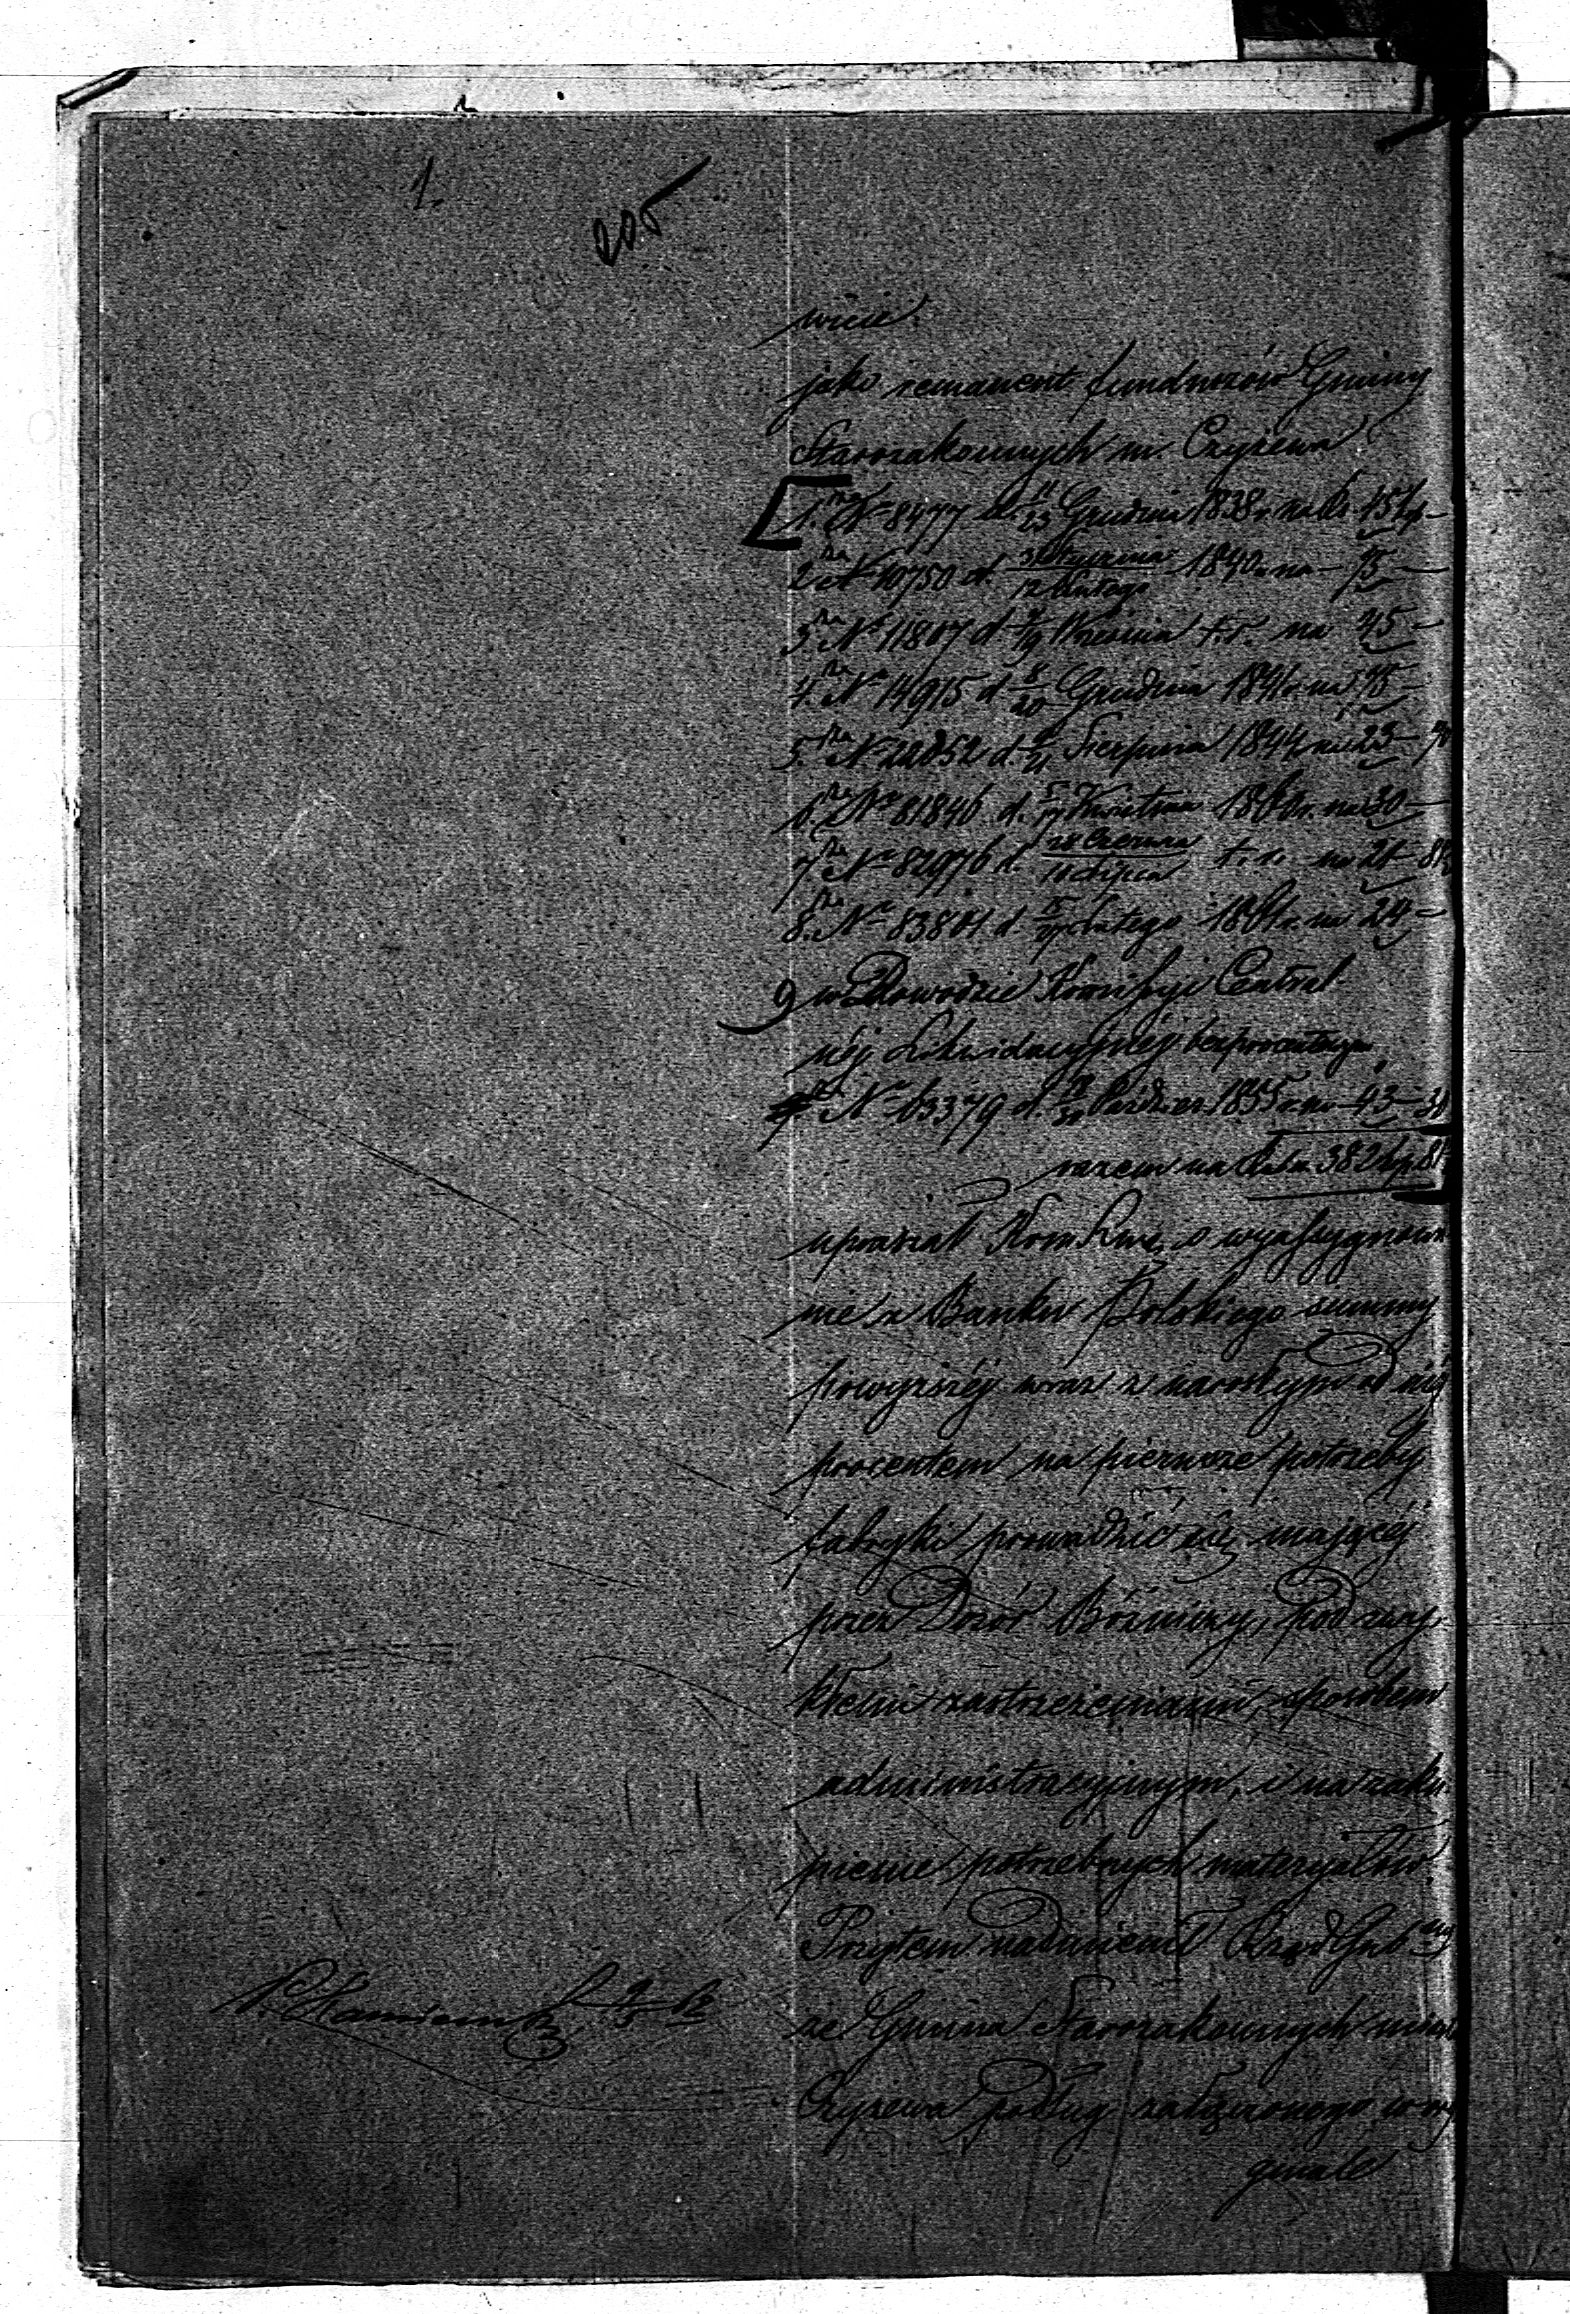 1.
205
wicie
jako remanent funduszów Gminy
Starozakonnych m. Czyżewa
1. na № 8477 d. 11/23 Grudnia 1838 r. na Rs. 75 kp –
2 na № 10750 d. 31 Stycznia/12 Lutego 1840 r. na – 75 –
3. na № 11807 d 7/19 Września t. r. na 45 –
4. na № 14915 d 8/20 Grudnia 1841 r. na 75 –
5. na № 22852 d. 9/21 Sierpnia 1844 r. na 23 –
6. na № 81846 d. 5/17 Kwietnia 1860 r. na 30 –
7 na № 82976 d. 28 Czerwca/10 Lipca t. r. na
8. na № 83801 d. 15/27 Lutego 1861 r. na 24 –
9 w Dowodzie Komissyi Central
néj Likwidacyjnéj bezprocentowym
na № 63379 d. 18/30 Paździer. 1855 r. na 43 –
razem na Rubsr. 382 kp. 81
upraszał Kom. Rząd. o wyassygnowa
nie z Banku Polskiego summy
powyższéj wraz z narosłym od niéj
procentem na pierwsze potrzeby
fabryki prowadzić się mającéj
przez Dozór Bóżniczy, pod zwy-
kłemi zastrzeżeniami, sposobem
administracyjnym, i na zaku
pienie potrzebnych materyałów.
Przytem nadmienił Rząd Gub ny
że Gmina Starozakonnych miasta
Czyżewa podług załączonego w ory
ginale